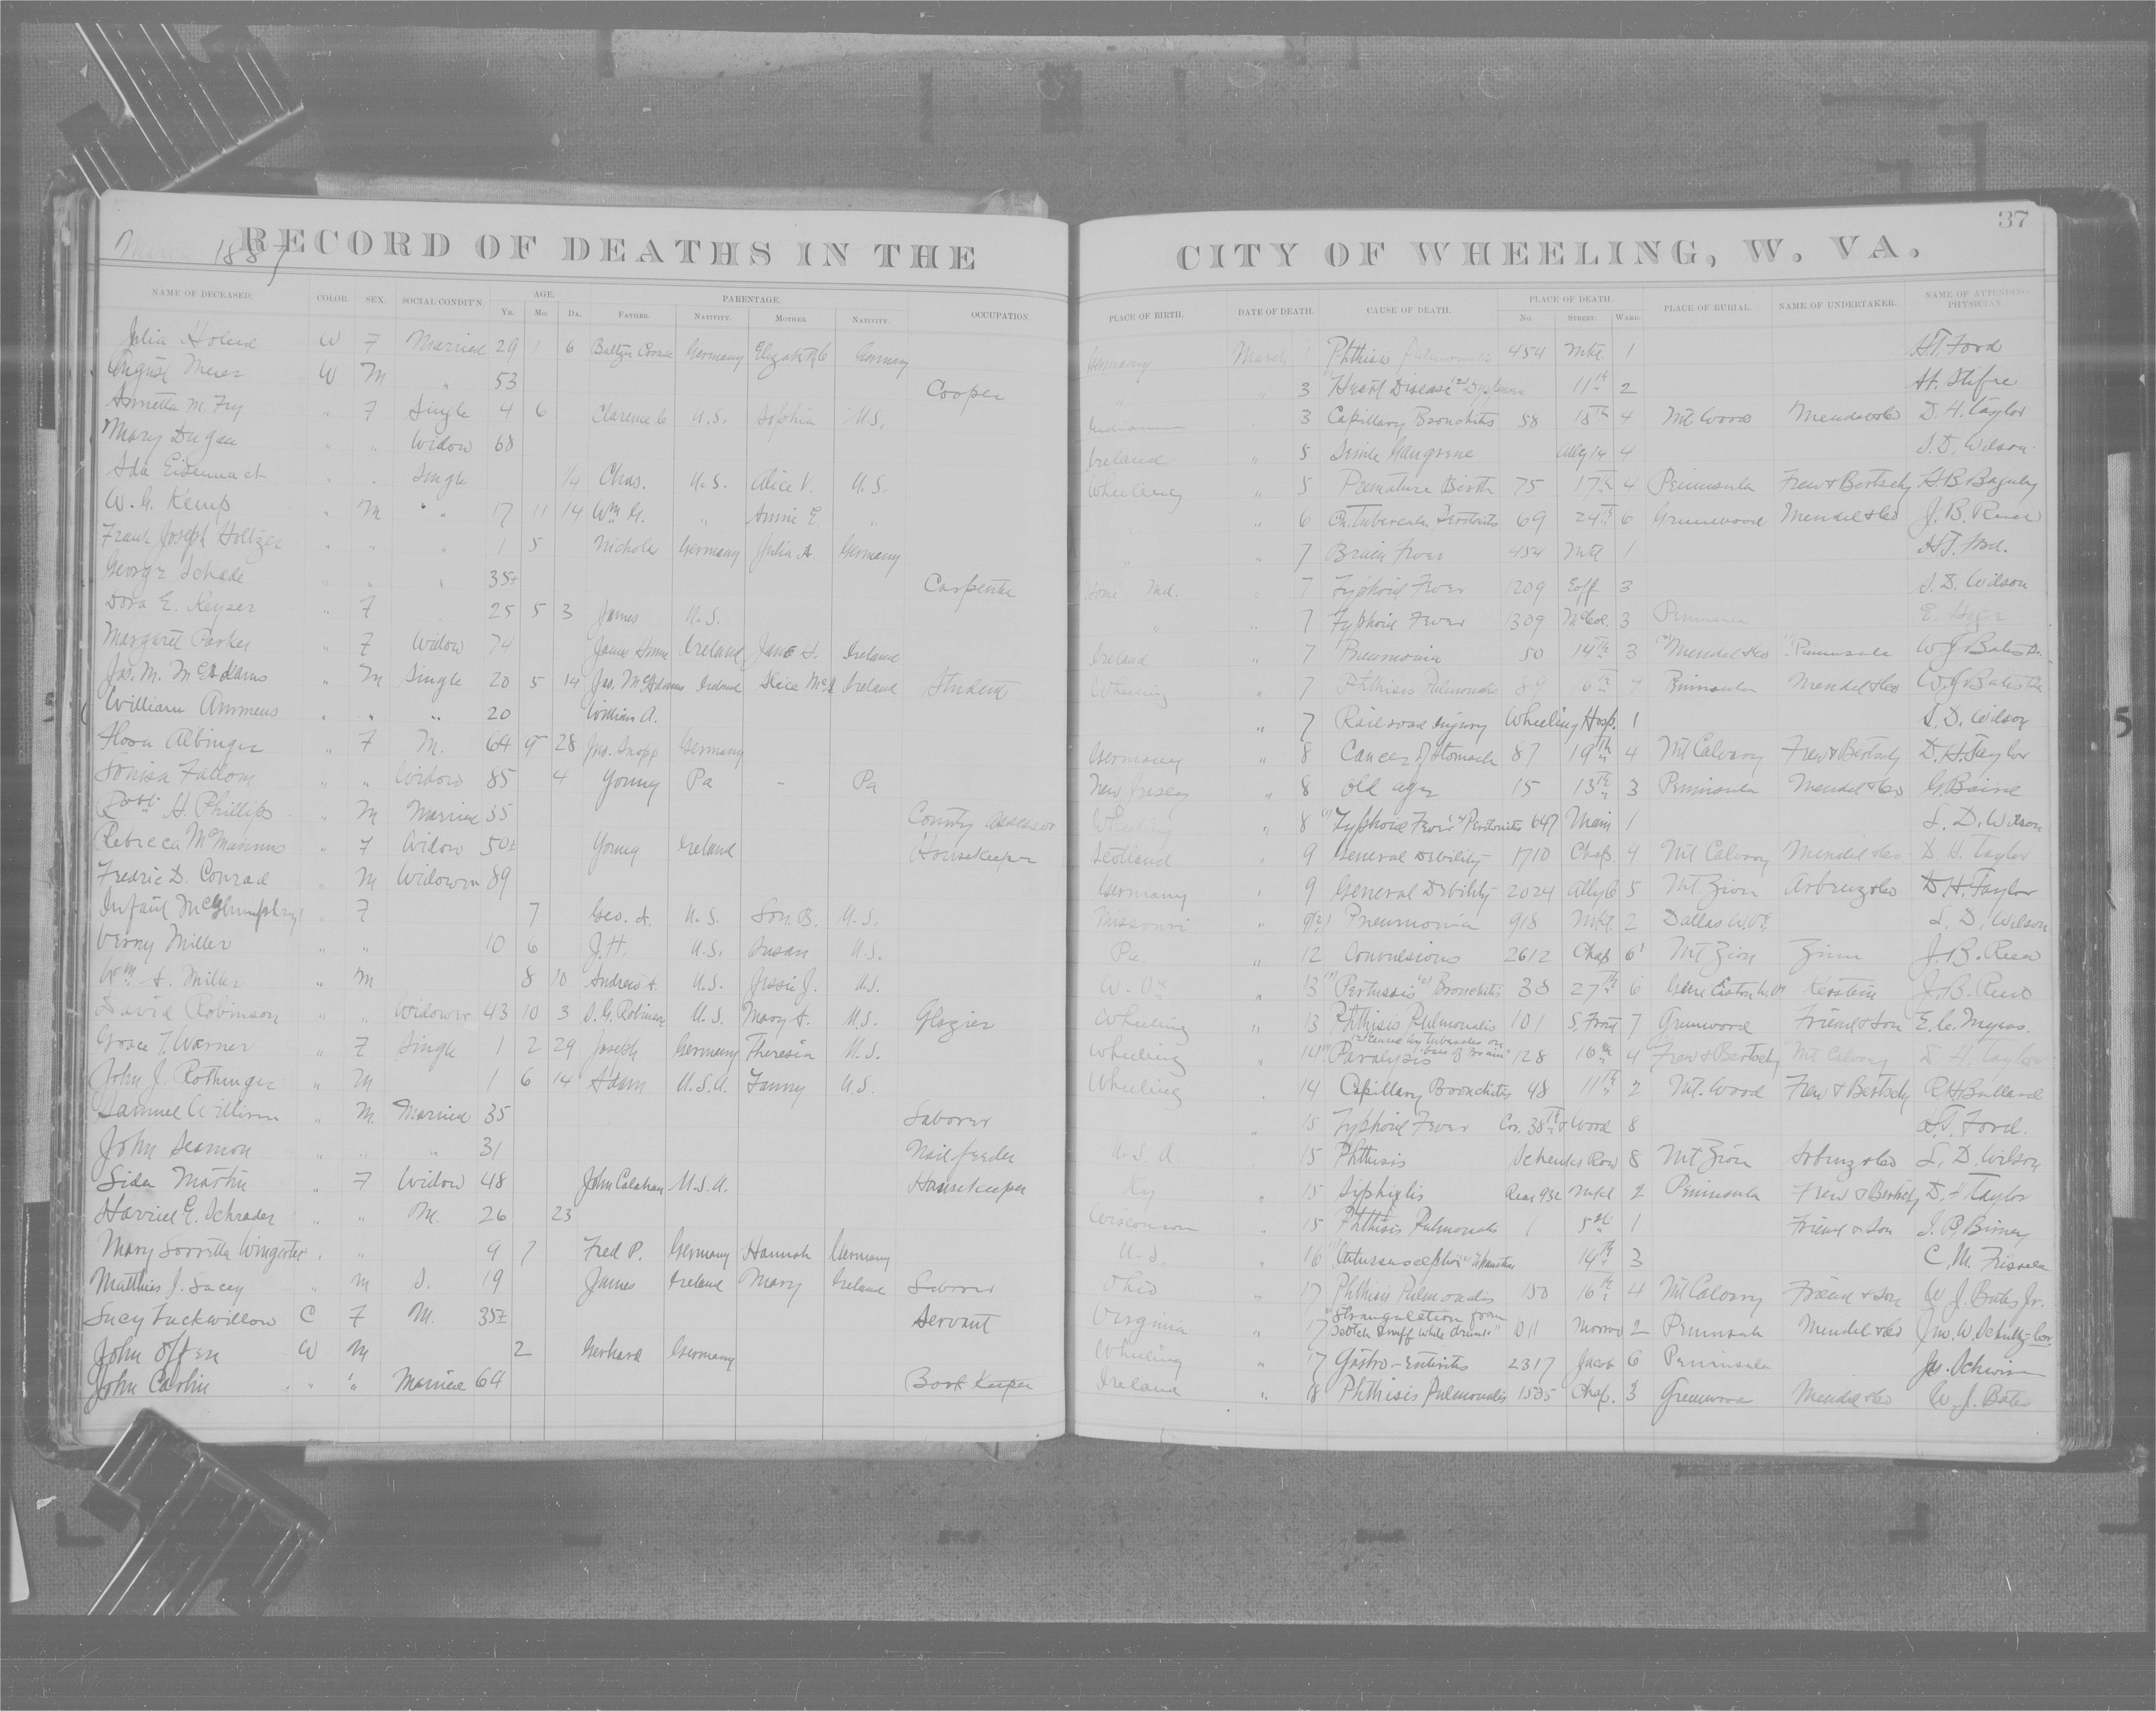 37
March 1887
RECORD OF DEATHS IN THE CITY OF WHEELING, W. VA.
NAME OF DECEASED. COLOR. SEX. SOCIAL CONDIT'N. AGE. Yr. Mo. Da. PARENTAGE. Father. Nativity. Mother. Nativity. OCCUPATION. PLACE OF BIRTH. DATE OF DEATH. CAUSE OF DEATH. PLACE OF DEATH. No. Street. Ward. PLACE OF BURIAL. NAME OF UNDERTAKER. NAME OF ATTENDING PHYSICIAN.
Julia W F Married 29 1 6 Germany Elizabeth Germany Germany March 1 Phthisis Pulmonalis 454 Mkt. 1 H.T. Ford
August Meier W M " 53 Cooper " " 3 (1) Heart Disease (2) 11th 2
Annetta M. Fry " F Single 4 6 Clarence U.S. Sophia U.S. Indiana 3 Capillary Bronchitis 58 18th 4 Mt Wood Mendel & Co D. H. Taylor
Mary Dugan " " Widow 68 Ireland " 5 Senile Gangrene Alley 14 4 S. D. Wilson
Ada Eisennach " " Single 1/4 Chas. U.S. Alice V. U.S. Wheeling " 5 Premature Birth 75 17th 4 Peninsula Frew & Bertschy
W. G. Kemp " M " " 17 11 14 Wm G. " Annie E. " " " 6 69 24th 6 Greenwood Mendel & Co J. B. Reed
Frank Joseph Holtzer " " " 1 5 Nichola Germany Julia A. Germany " " 7 Brain Fever 454 Mkt 1 H.T. Ford.
George Schade " " " 35± Carpenter Md. " 7 Typhoid Fever 1209 Eoff 3 S. D. Wilson
Dora E. Keyser " F 25 5 3 James U.S. " " 7 Typhoid Fever 309 McCol. 3 Peninsula
Margaret Parker " F Widow 74 James Ireland Jane S. Ireland Ireland " 7 Pneumonia 50 14th 3 (2) Mendel & Co (1) Peninsula W J Bates
Jas. M. McAdams " M Single 20 5 14 Jas. McAdams Ireland Alice McA Ireland Student Wheeling " 7 Phthisis Pulmonalis 89 16th Peninsula Mendel & Co W. J. Bates
William Ammens " " " 20 William A. " 7 Railroad Injury Wheeling Hosp. 1 S. D. Wilson
Flora Albinger " F M. 64 9 28 Jno. Germany Germany " 8 Cancer of Stomach 87 19th 4 Mt Calvary Frew & Bertschy D. H. Taylor
Louisa " " Widow 85 4 Young Pa - Pa New Jersey " 8 Old age 15 13th 3 Peninsula Mendel & Co G. Baird
Robt. H. Phillips " M Married 35 County Assessor Wheeling " 8 (1) Typhoid Fever (2) Peritonitis 647 Main 1 S. D. Wilson
Rebecca McManus " F Widow 50± Young Ireland Housekeeper Scotland " 9 General Debility 1710 Chap. 4 Mt Calvary Mendel & Co D. H. Taylor
Fredric D. Conrad " M Widower 89 Germany " 9 General Debility 2024 Alley 6 5 Mt Zion Arbenz & Co D. H. Taylor
Infant McGlumphry " F 7 Geo. A. U.S. B. U.S. Missouri " 9(?) Pneumonia 918 Mkt. 2 Dallas W. Va. S. D. Wilson
Verny Miller " " 10 6 J. H. U.S. Susan U.S. Pa " 12 Convulsions 2612 Chap 6 Mt Zion Zinn J. B. Reed
Wm A. Miller " M 8 10 Andrew A. U.S. Jessie J. U.S. W. Va " 13 (1) Pertussis (2) Bronchitis 38 27th 6 J. B. Reed
David Robinson " " Widower 43 10 3 D. G. Robinson U.S. Mary A. U.S. Glazier Wheeling " 13 Phthisis Pulmonalis 101 S. Front 7 Greenwood Friend & Son E. C. Myers.
Grace T. Warner " F Single 1 2 29 Joseph Germany Theresia U.S. Wheeling " 14 (1) Paralysis (2) Caused by tubercles on base of brain 128 16th 4 Frew & Bertschy Mt Calvary D. H. Taylor
John J. Rothinger " M 1 6 14 Adam U.S.A. Fanny U.S. Wheeling " 14 Capillary Bronchitis 48 11th 2 Mt. Wood Frew & Bertschy R. H. Bullard
Samuel William " M. Married 35 Laborer " 15 Typhoid Fever Cor. 38th & Wood 8 H.T. Ford.
John Seamon " " " 31 Nail feeder U.S.A. 15 Phthisis Row 8 Mt Zion Arbenz & Co S. D. Wilson
Sida Martin " F Widow 48 John Calahan U.S.A. Housekeeper Ky " 15 Siphiglis Rear 932 Mkt. 2 Peninsula Frew & Bertschy D. H. Taylor
Harriet E. Schrader " " M. 26 23 Wisconsin " 15 Phthisis Pulmonalis 1 5th 1 Friend & Son
Mary Sorretta Wingerter " " 9 7 Fred P. Germany Hannah Germany U.S. " 16 14th 3 C. M. Frissell
Matthias J. Lacey " M S. 19 James Ireland Mary Ireland Laborer Ohio " 17 Phthisis Pulmonalis 150 16th 4 Mt Calvary Friend & Son W. J. Bates Jr.
Lucy Tuckwillow C F M. 35± Servant Virginia " 17 Strangulation from Scotch Snuff while drunk 1011 2 Peninsula Mendel & Co Jno. W. Schultz Cor.
John Offen W M 2 Gerhard Germany Wheeling " 17 Gastro-Enteritis 2317 Jacob 6 Peninsula
John Carlin " " Married 64 Book Keeper Ireland " 18 Phthisis Pulmonalis 1535 Chap. 3 Greenwood Mendel & Co W. J. Bates
5